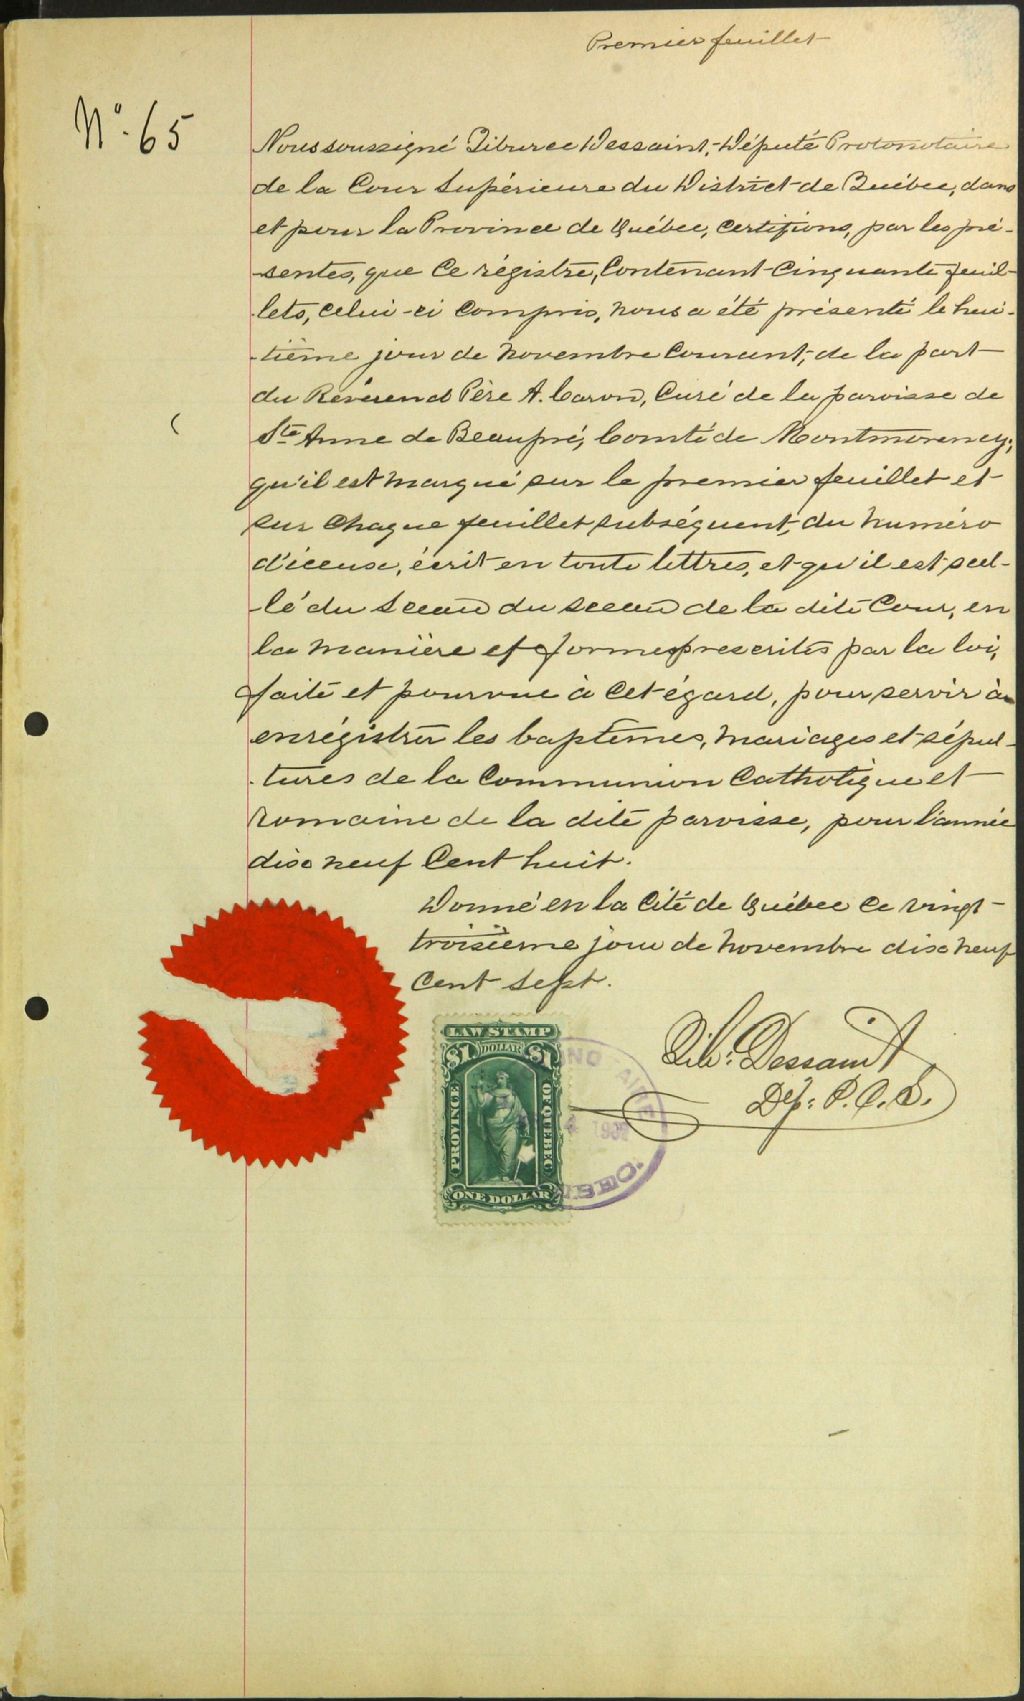 Premier feuillet
No. 65
Nous soussigné Tiburce Dessaint, Député Protonotaire
de la Cour Supérieure du District de Québec, dans
et pour la Province de Québec, certifions, par les pré-
-sentes, que ce régistre, contenant cinquante feuil-
-lets, celui-ci compris, nous a été présenté le hui-
-tième jour de novembre courant, de la part
du Révérend Père A. Caron, Curé de la paroisse de
Ste Anne de Beaupré, Comté de Montmorency,
qu'il est marqué sur le premier feuillet et
sur chaque feuillet subséquent, du numéro
d'iceux, écrit en toute lettres, et qu'il est scel-
-lé du sceau du sceau de la dite Cour, en
la manière et forme prescrites par la loi,
faite et pourvue à cet égard, pour servir à
enrégistrer les baptêmes, mariages et sépul-
-tures de la Communion Catholique et
romaine de la dite paroisse, pour l'année
dix neuf cent huit.
Donné en la Cité de Québec ce vingt-
troisième jour de novembre dix neuf
cent sept.
Tib. Dessaint
Dép. P.C.S.
LAW STAMP
$1 DOLLAR $1
PROVINCE OF QUEBEC
ONE DOLLAR